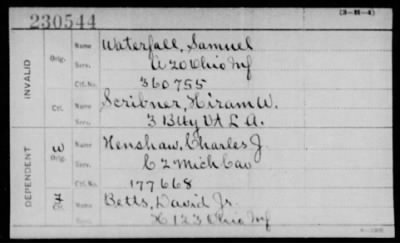 230544 (3-H-4)
INVALID
Orig. Name Waterfall, Samuel
Serv. A 20 Ohio Inf
Ctf. No. 360755
Ctf. Name Scribner, Hiram W.
Serv. 3 Bty Vt L A.
DEPENDENT
W Orig. Name Henshaw, Charles J.
Serv. C 2 Mich Cav
Ctf. No. 177668
Name Betts, David Jr.
Serv. H 123 Ohio Inf